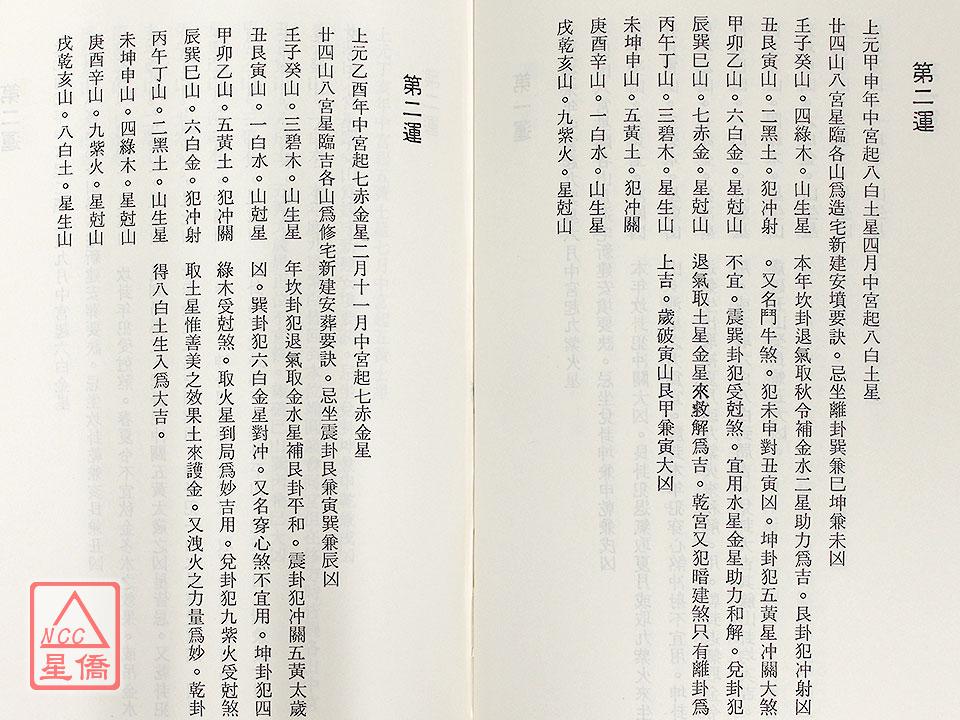 第二運
上元甲申年中宮起八白土星四月中宮起八白土星
廿四山八宮星臨各山爲造宅新建安墳要訣。忌坐離卦巽兼巳坤兼未凶
壬子癸山。四綠木。山生星　本年坎卦退氣取秋令補金水二星助力爲吉。艮卦犯冲射凶
丑艮寅山。二黑土。犯冲射　。又名鬥牛煞。犯未申對丑寅凶。坤卦犯五黃星冲關大煞
甲卯乙山。六白金。星尅山　不宜。震巽卦犯受尅煞。宜用水星金星助力和解。兌卦犯
辰巽巳山。七赤金。星尅山　退氣取土星金星來救解爲吉。乾宮又犯暗建煞只有離卦爲
丙午丁山。三碧木。星生山　上吉。歲破寅山艮甲兼寅大凶
未坤申山。五黃土。犯冲關
庚酉辛山。一白水。山生星
戌乾亥山。九紫火。星尅山
第二運
上元乙酉年中宮起七赤金星二月十一月中宮起七赤金星
廿四山八宮星臨吉各山爲修宅新建安葬要訣。忌坐震卦艮兼寅巽兼辰凶
壬子癸山。三碧木。山生星　年坎卦犯退氣取金水星補艮卦平和。震卦犯冲關五黃太歲
丑艮寅山。一白水。山尅星　凶。巽卦犯六白金星對冲。又名穿心煞不宜用。坤卦犯四
甲卯乙山。五黃土。犯冲關　綠木受尅煞。取火星到局爲妙吉用。兌卦犯九紫火受尅煞
辰巽巳山。六白金。犯冲射　取土星惟善美之效果土來護金。又洩火之力量爲妙。乾卦
丙午丁山。二黑土。山生星　得八白土生入爲大吉。
未坤申山。四綠木。星尅山
庚酉辛山。九紫火。星尅山
戌乾亥山。八白土。星生山
NCC
星僑